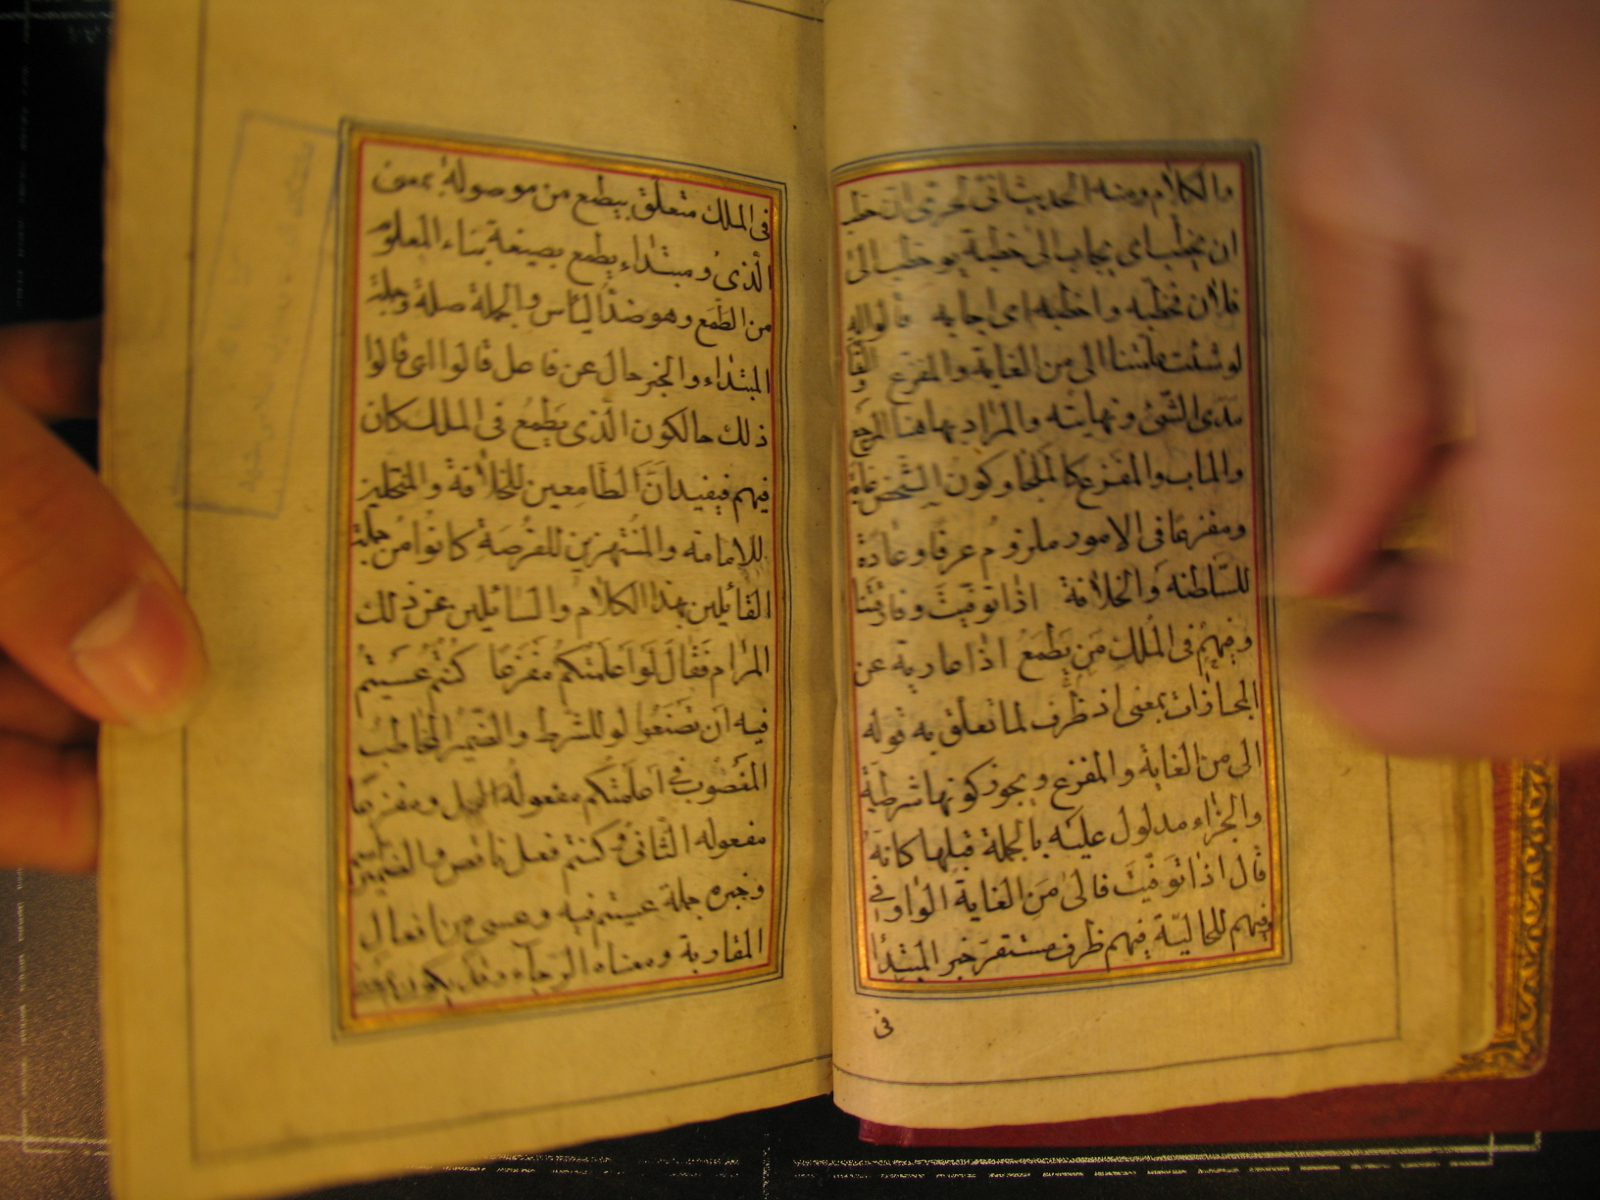 والكلام ومنه الحديث
ان يخطب اى يجاب الى خطبة يو خطب الى
فلان فخطبه واخطبه اى اجابه قالوا له
لو شئت علمتنا الى من الغاية والمفزع
مدى الشئ ونهايته والمراد بها هنا المرجع
والماب والمفزع كالملجا وكون الشخص غاية
ومفزعا فى الامور ملزوم عرفا وعادة
للسلطنه والخلافة اذا توفيت وفارقتنا
وفيهم فى الملك من يطمع اذا عارية عن
المجازات بمعنى اذ ظرف لما تعلق به قوله
الى من الغاية والمفزع ويجوز كونها شرطية
والجزاء مدلول عليه بالجملة قبلها كانه
قال اذا توفيت فالى من الغاية الواو فى
فيهم للحالية فيهم ظرف مستقر خبر المبتدا
فى
فى الملك متعلق بيطمع من موصولة بمعنى
الذى ومبتداء يطمع بصيغة بناء المعلوم
من الطمع وهو ضد الياس والجملة صلة وجملة
المبتداء والخبر حال عن فاعل قالوا اى قالوا
ذلك حالكون الذى يطمع فى الملك كان
فيهم فيفيد ان الطامعين للخلافة والمتحلين
للامامته والمنتهزين للفرصة كانوا من جملة
القائلين بهذا الكلام والسائلين عن ذلك
المرام فقال لو اعلمتكم مفزعا كنتم عسيتم
فيه ان تصنعوا لو للشرط والضمير المخاطب
المنصوب فى اعلمتكم مفعوله الاول ومفزعا
مفعوله الثانى وكنتم فعل ناقص والضمير اسمه
وخبره جملة عسيتم فيه وعسى من افعال
المقاربة ومعناه الرجاء وقد يكون